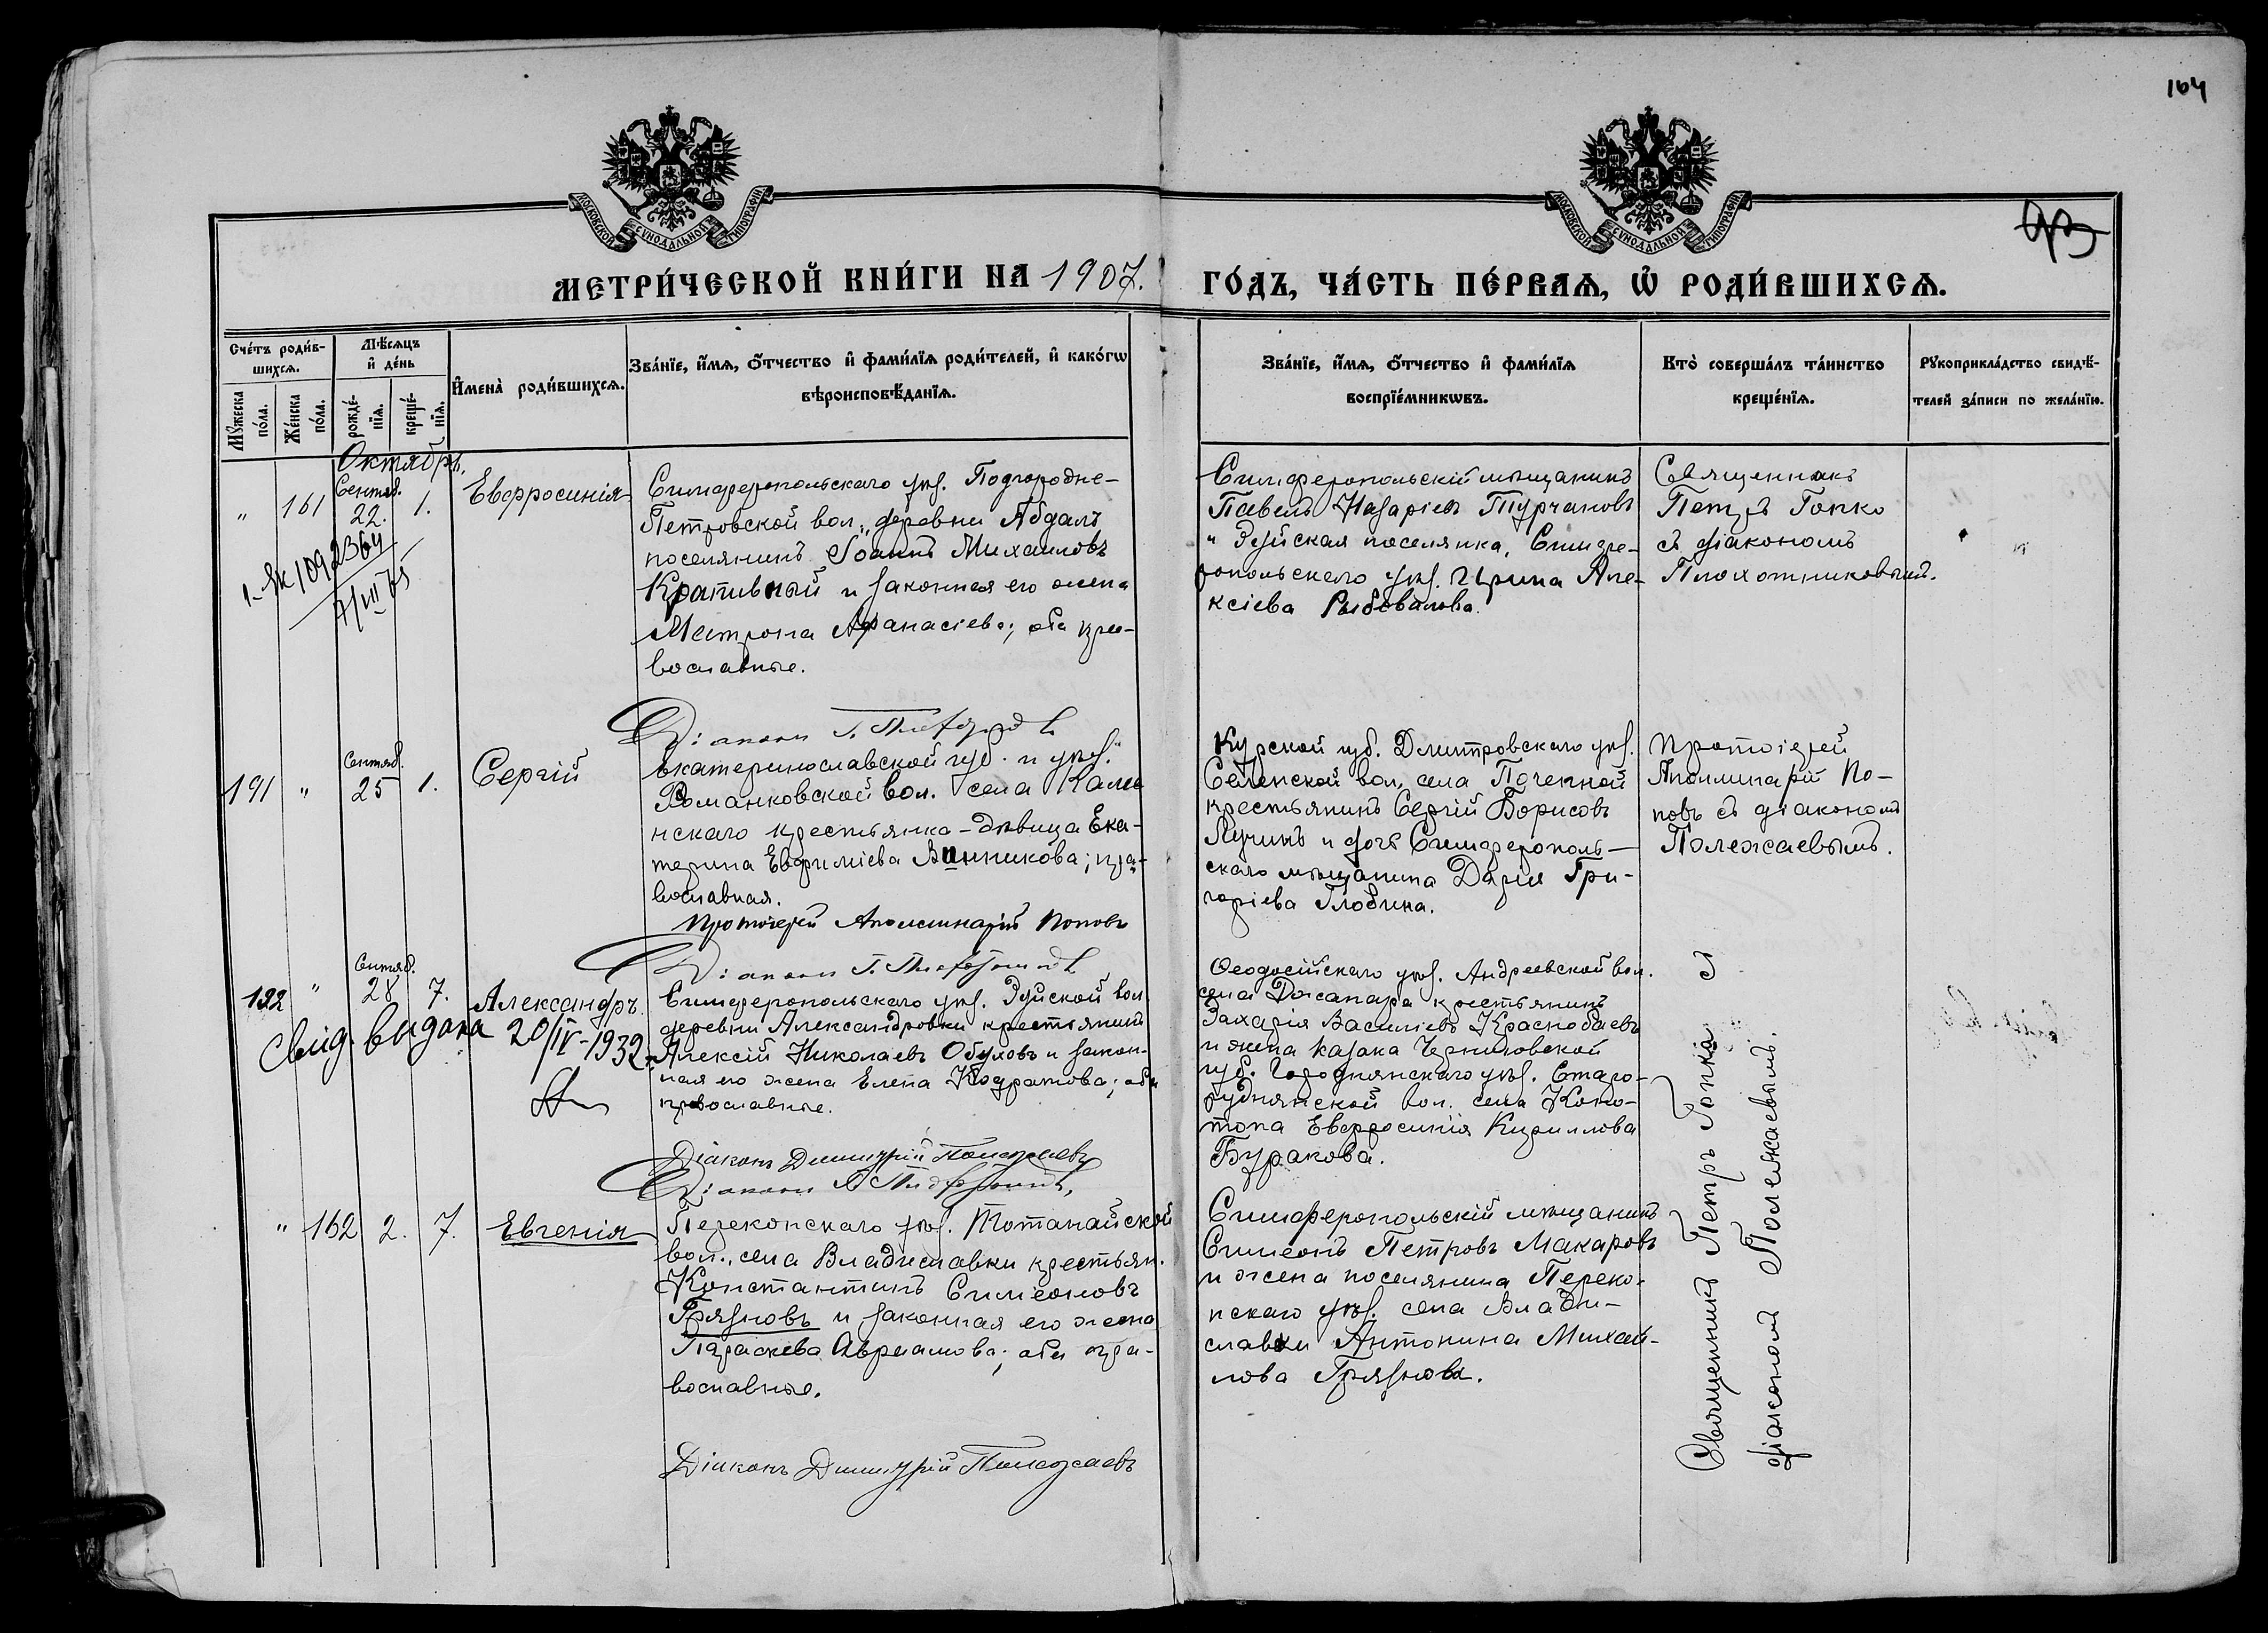 104
93
МОСКОВСКОЙ СѴНОДАЛЬНОЙ ТИПОГРАФІИ
МОСКОВСКОЙ СѴНОДАЛЬНОЙ ТИПОГРАФІИ
МЕТРИ́ЧЕСКОЙ КНИ́ГИ НА 1907. ГО́ДЪ, ЧА́СТЬ ПЕ́РВАЯ, Ѡ РОДИ́ВШИХСЯ.
Сче́тъ роди́в-
шихся.
Мꙋжеска по́ла.
Же́нска по́ла.
Мѣ́сяцъ
и де́нь
рожде́-
нїя.
креще́-
нїя.
И҆мена̀ роди́вшихся.
Зва́нїе, и҆́мя, ѻ҆́тчество и҆ фами́лїя роди́телей, и҆ како́гѡ
вѣроисповѣ́данїя.
Зва́нїе, и҆́мя, ѻ҆́тчество и҆ фами́лїя
воспрїе́мникѡвъ.
Кто̀ соверша́лъ та́инство
креще́нїя.
Рꙋкоприкла́дство свидѣ́-
телей за́писи по жела́нїю.
Октябрь.
" 161 Сентяб. 22. 1. Евфросинія
Симферопольскаго уѣз. Подгородне-
Петровской вол., деревни Абдалъ
поселянинъ Іоаннъ Михаиловъ
Крапивный и законная его жена
Матрона Афанасіева; оба пра-
вославные.
Симферопольскій мѣщанинъ
Павелъ Назаріевъ Турчановъ
и Зуйская поселянка, Симфе-
ропольскаго уѣз. Ирина Але-
ксіева Рыбовалова.
Священникъ
Петръ Гопко
съ діакономъ
Плохотниковымъ.
191 " Сентяб. 25 1. Сергій
Екатеринославской губ. и уѣз.
Романковской вол. села Каме
нскаго крестьянка-дѣвица Ека-
терина Евфиміева Винникова; пра-
вославная.
Протоіерей Аполлинарій Поповъ
Курской губ. Дмитровскаго уѣз.
Селенской вол, села Поченной
крестьянинъ Сергій Борисовъ
Лучинъ и дочь Симферополь-
скаго мѣщанина Дарія Гри-
горіева Глобина.
Протоіерей
Аполлинарій По-
повъ съ діакономъ
Полежаевымъ.
192 " Сентяб. 28 7. Александръ.
Свид. видана 20/IV-1932
Симферопольскаго уѣз. Зуйской вол.
деревни Александровки крестьянинъ
Алексій Николаевъ Обуховъ и закон-
ная его жена Елена Кодратова; оба
православные.
Діаконъ Димитрій Полежаевъ
Ѳеодосійскаго уѣз. Андреевской вол.
села Джапара крестьянинъ
Захарія Василіевъ Краснобаевъ
и жена казака Черниговской
губ. Городнянскаго уѣз. Старо-
руднянской вол. села Коно-
топа Евфросинія Кириллова
Буракова.
Священникъ Петръ Гопко съ
діакономъ Полежаевымъ.
" 162 2. 7. Евгенія
Перекопскаго уѣз. Тотанайской
вол., села Владиславки крестьян.
Константинъ Симеоновъ
Грязновъ и законная его жена
Параскева Авраамова; оба пра-
вославные.
Діаконъ Димитрій Полежаевъ
Симферопольскій мѣщанинъ
Симеонъ Петровъ Макаровъ
и жена поселянина Переко-
пскаго уѣз. села Влади-
славки Антонина Михаи-
лова Грязнова.